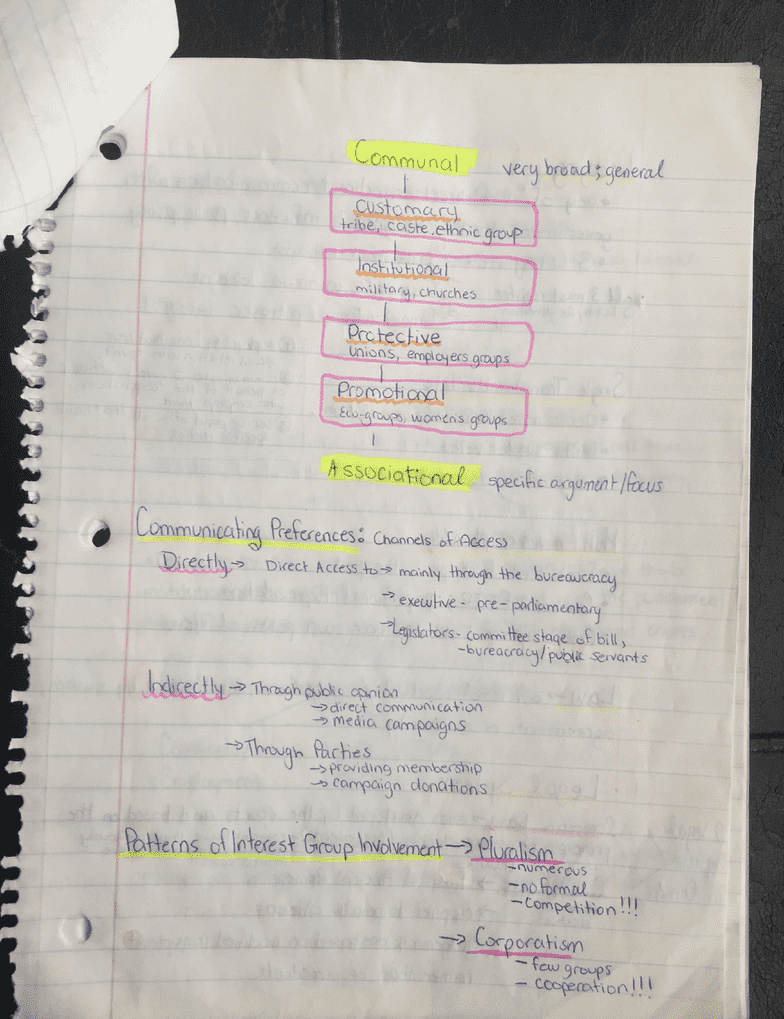 Communal very broad; general
Customary
tribe, caste, ethnic group
Institutional
military, churches
Protective
Unions, employers groups
Promotional
Eco-groups, womens groups
Associational specific argument/focus
Communicating Preferences: Channels of Access
Directly → Direct Access to → mainly through the bureaucracy
→ executive - pre-parliamentary
→ Legislators - committee stage of bill,
- bureacracy/public servants
Indirectly → Through public opinion
→ direct communication
→ media campaigns
→ Through Parties
→ providing membership
→ campaign donations
Patterns of Interest Group Involvement → Pluralism
- numerous
- no formal
- competition!!!
→ Corporatism
- few groups
- cooperation!!!